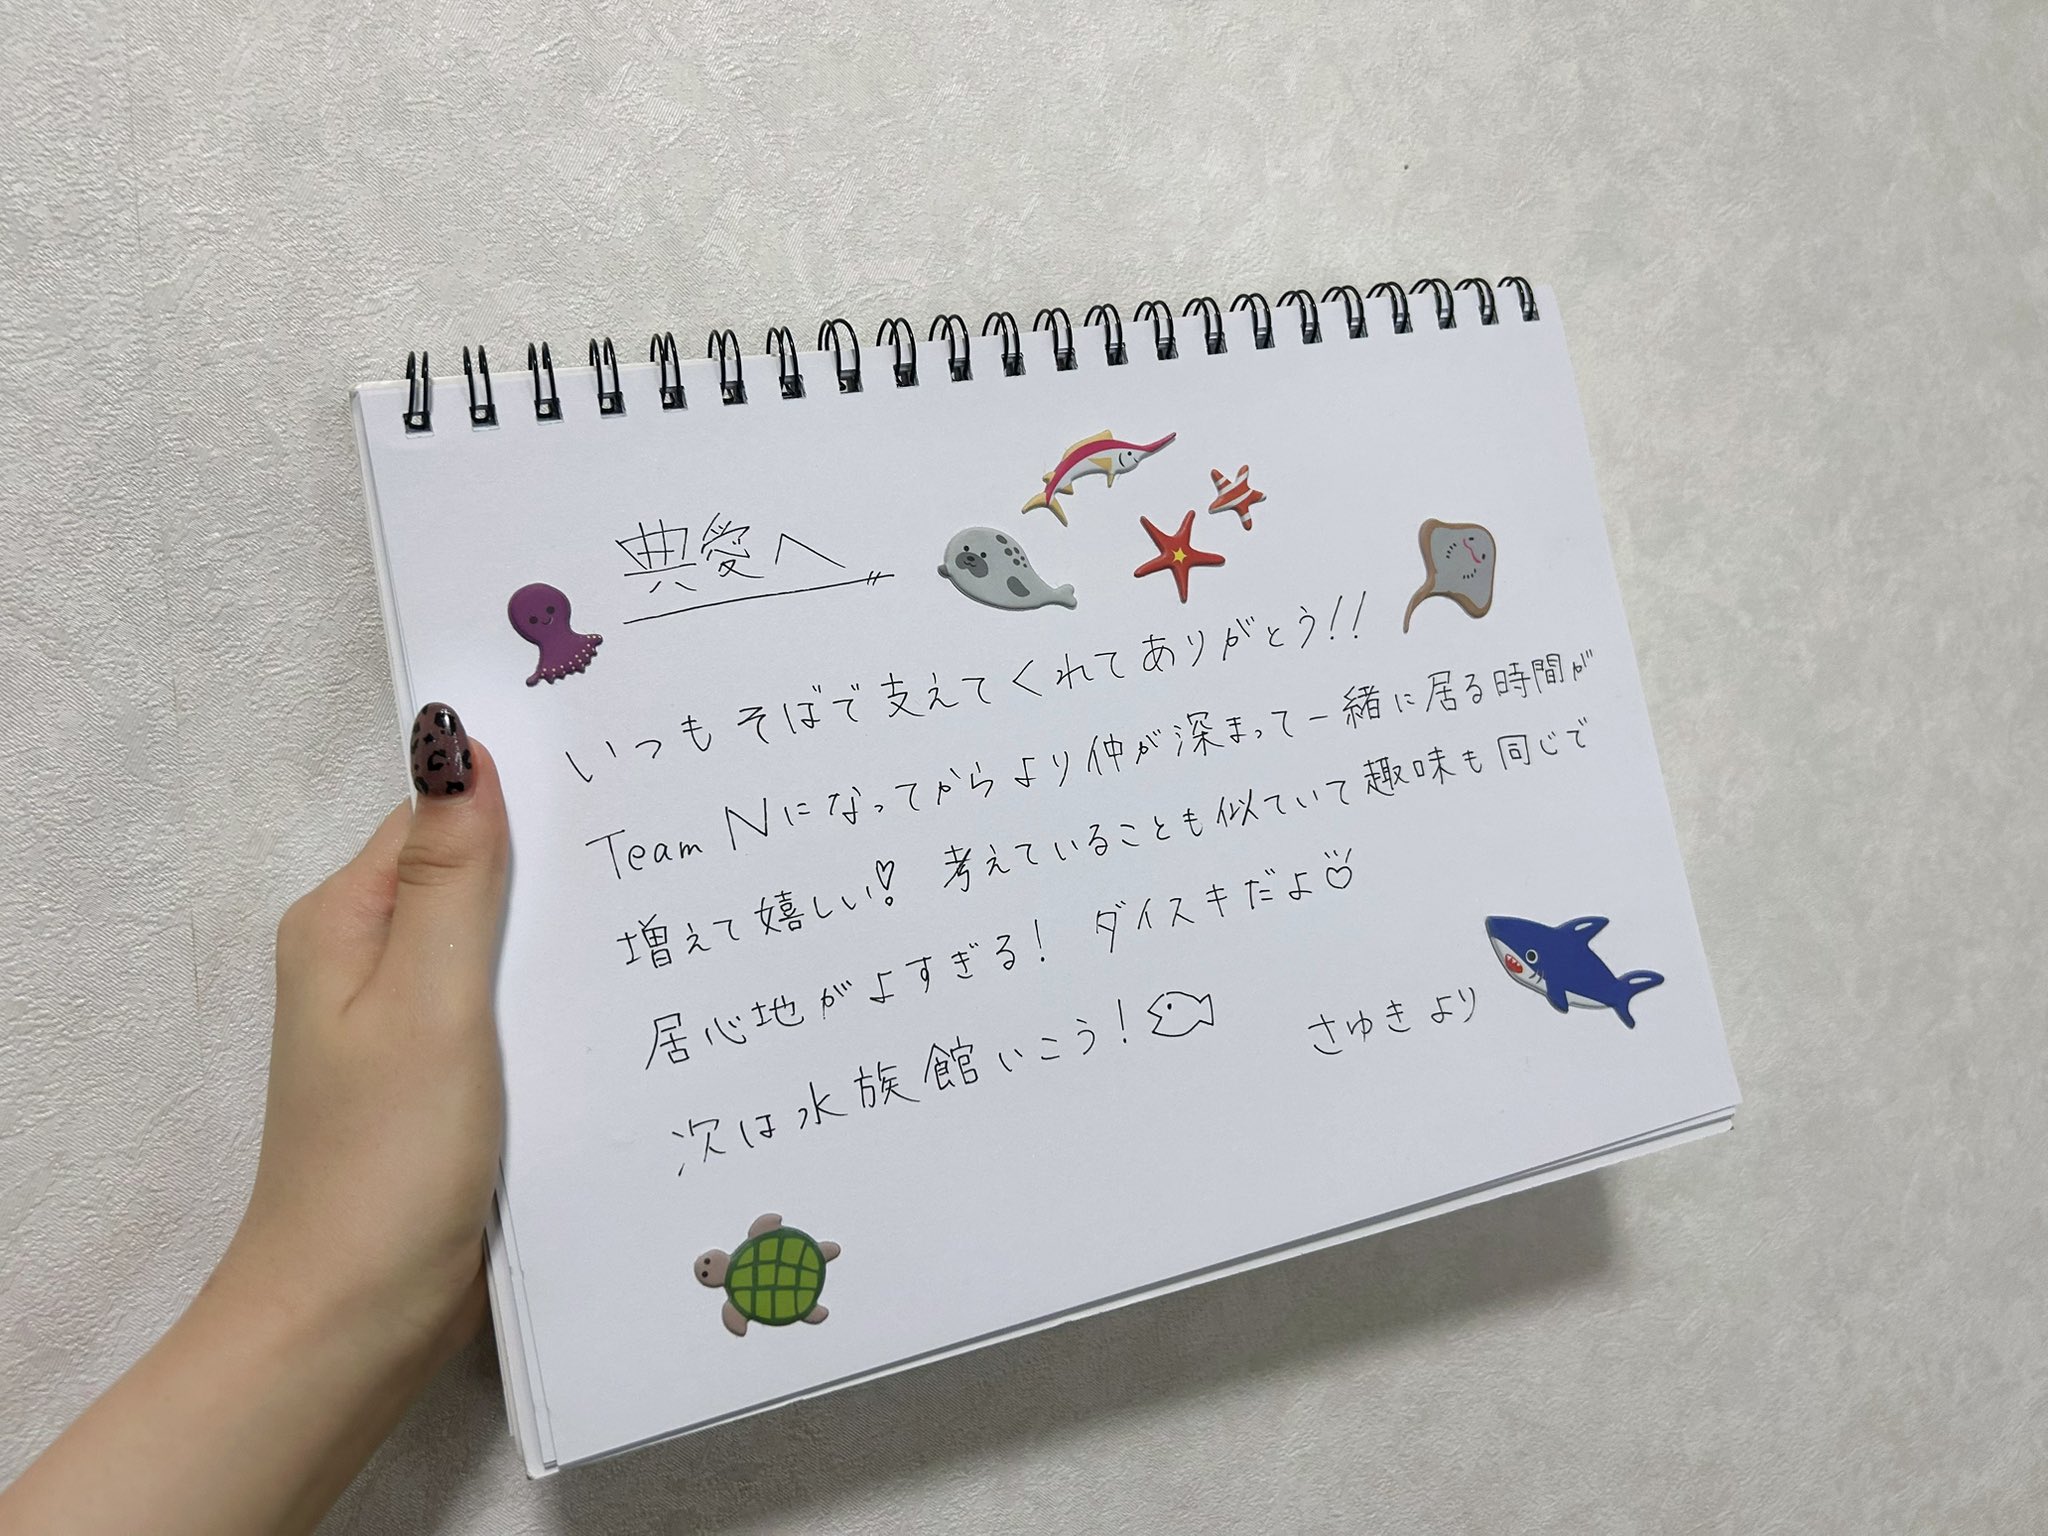 典愛へ
いつもそばで支えてくれてありがとう!!
Team Nになってからより仲が深まって一緒に居る時間が
増えて嬉しい! 考えていることも似ていて趣味も同じで
居心地がよすぎる! ダイスキだよ
次は水族館いこう!
さゆきより